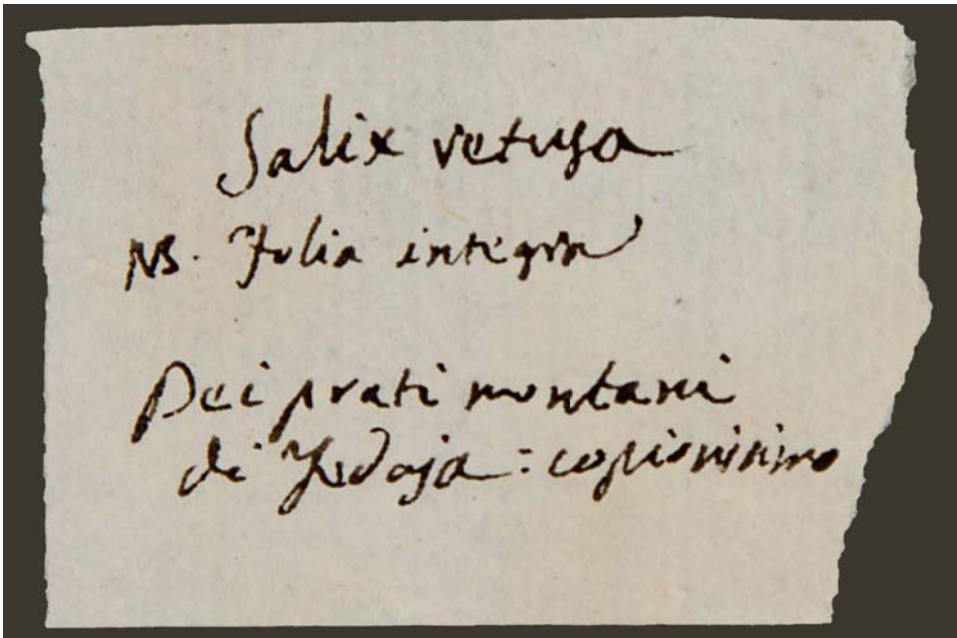 Salix retusa
NB. Folia integra
Dei prati montani
di Fedaja: copiosissimo